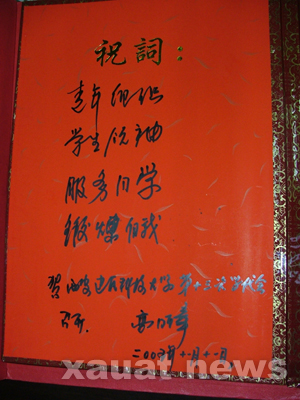 祝詞:
青年组织
学生领袖
服务同学
锻炼自我
贺西安建筑科技大学第十三次学代会
召开.
十一月十一日
xauat news